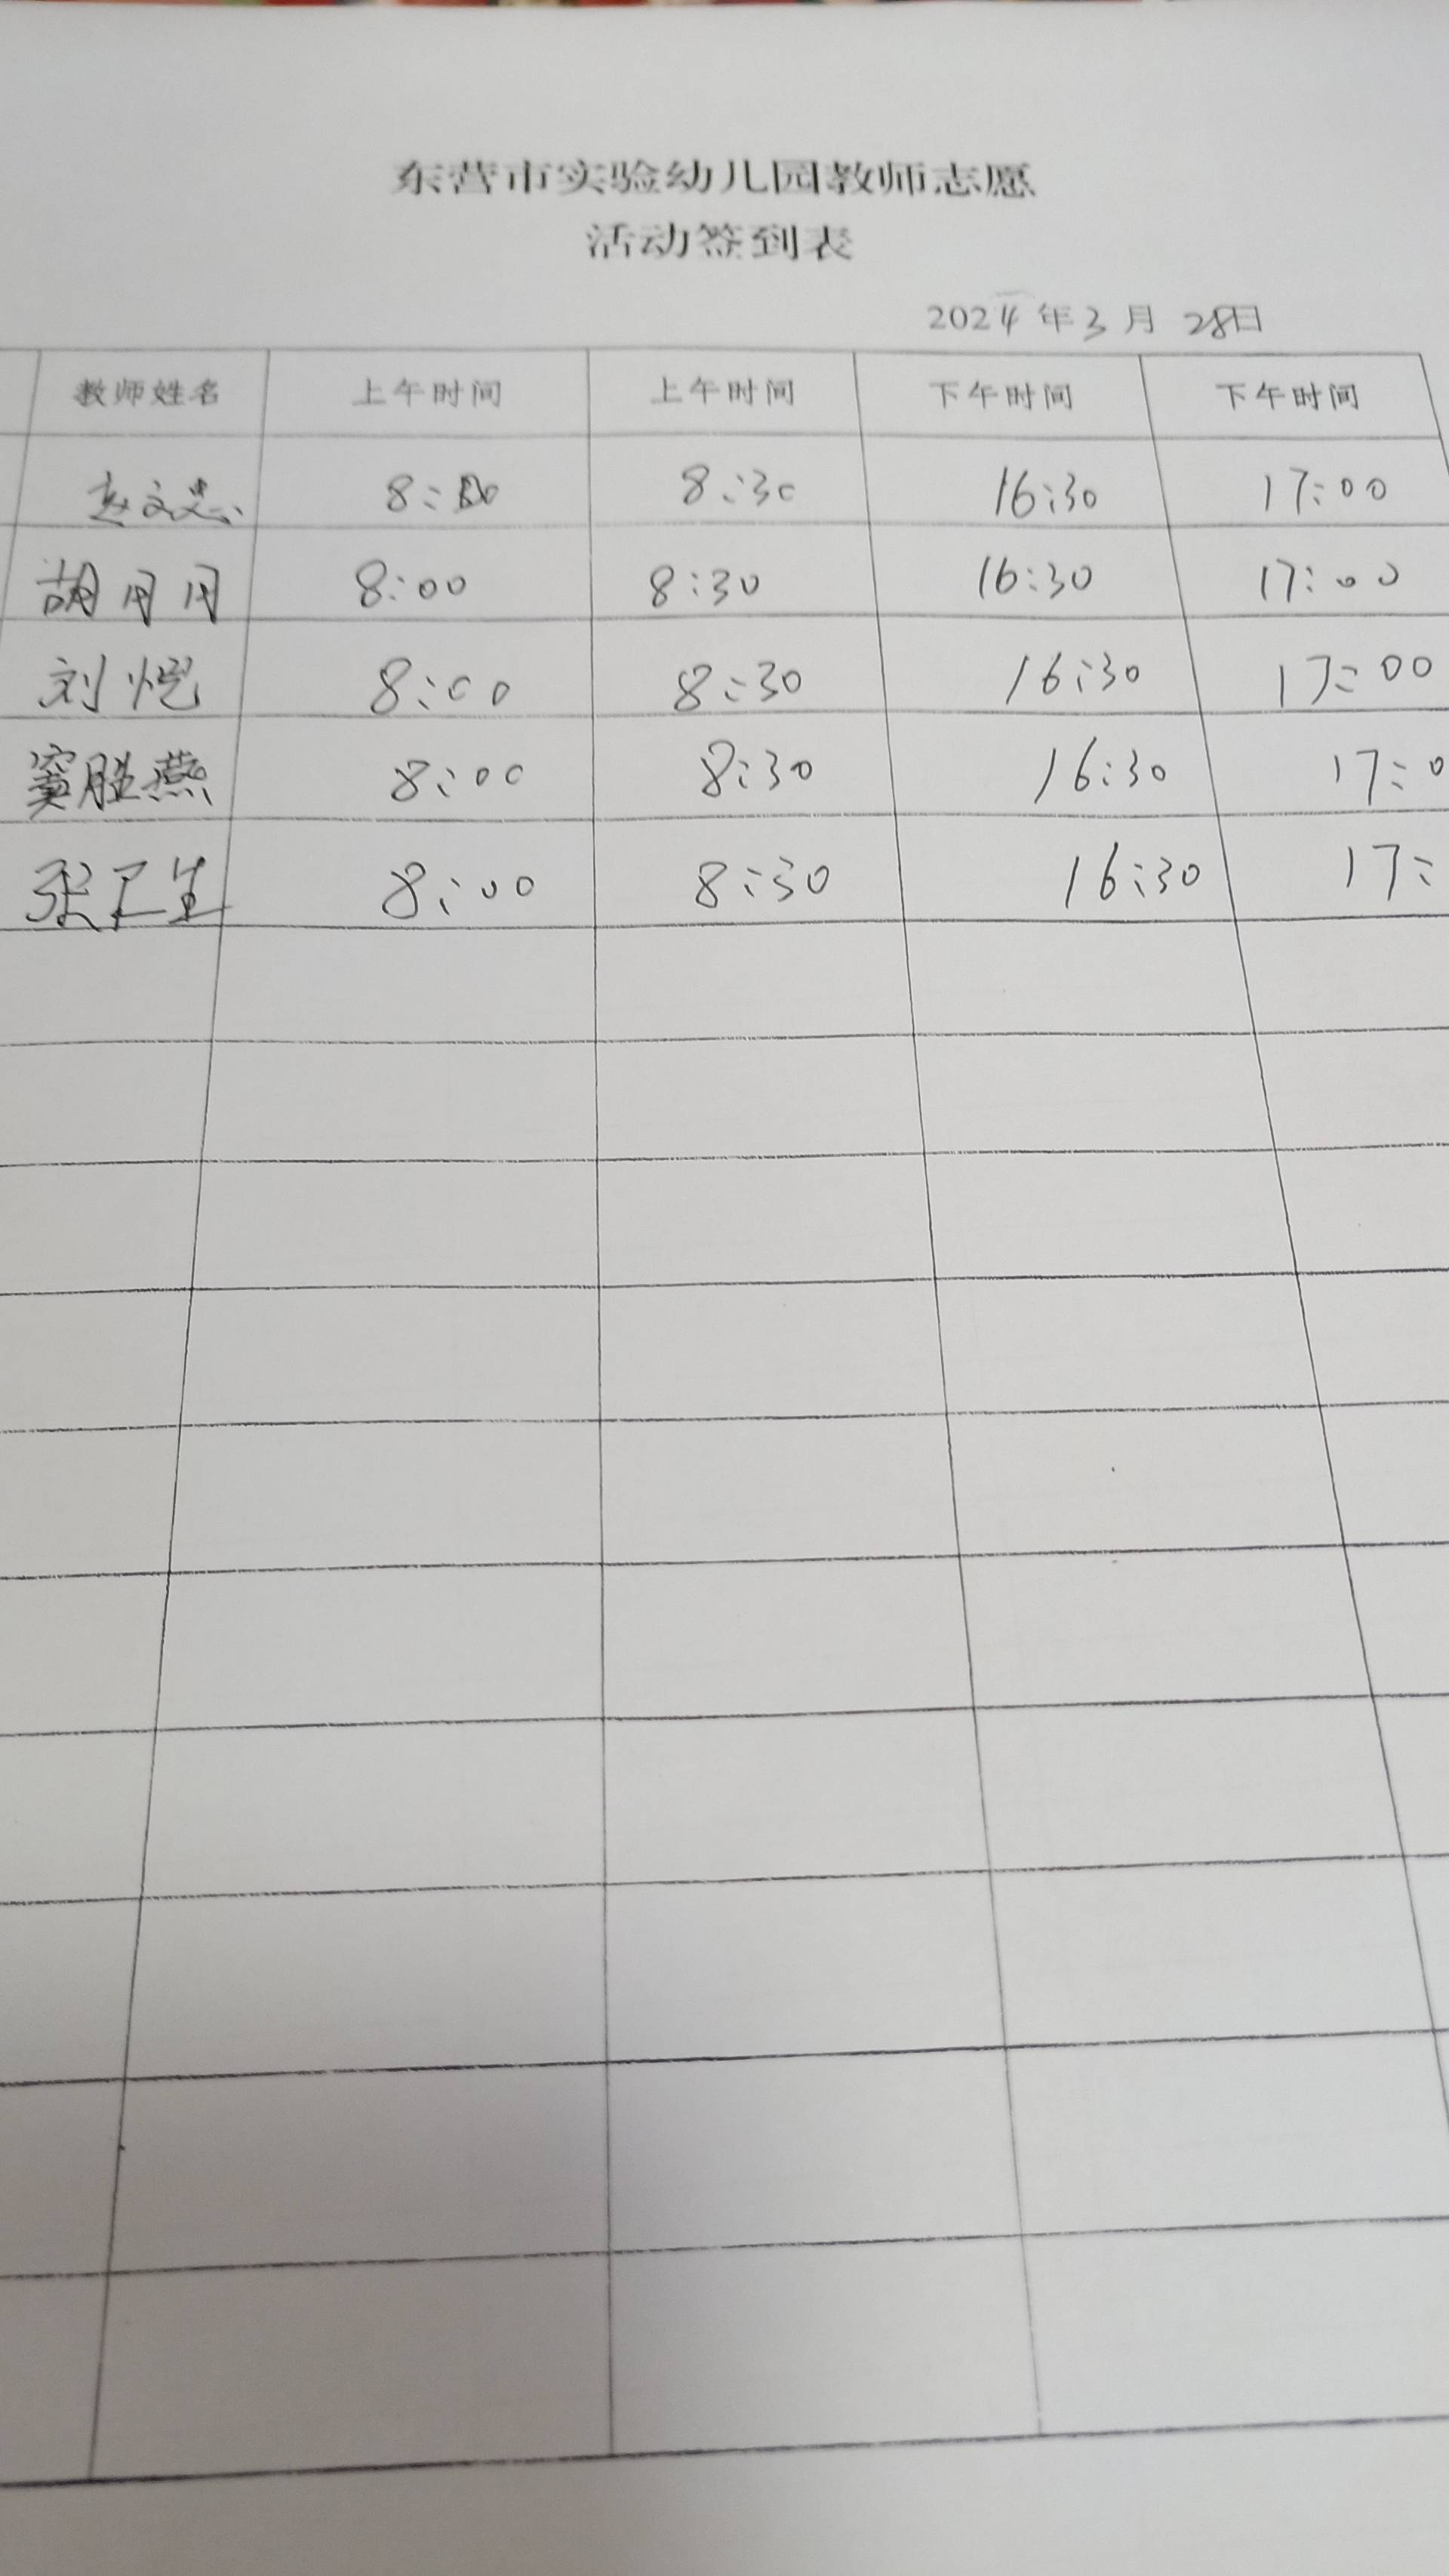 东营市实验幼儿园教师志愿
活动签到表
2024年3月28日
教师姓名 上午时间 上午时间 下午时间 下午时间
赵文 8:00 8:30 16:30 17:00
胡月月 8:00 8:30 16:30 17:00
刘恺 8:00 8:30 16:30 17:00
窦胜燕 8:00 8:30 16:30 17:0
张卫生 8:00 8:30 16:30 17: